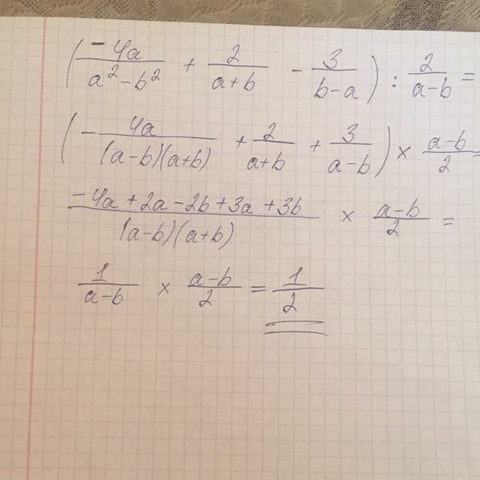 (-4a/(a²-b²) + 2/(a+b) - 3/(b-a)) : 2/(a-b) =
(-4a/((a-b)(a+b)) + 2/(a+b) + 3/(a-b)) × (a-b)/2 =
(-4a+2a-2b+3a+3b)/((a-b)(a+b)) × (a-b)/2 =
1/(a-b) × (a-b)/2 = 1/2